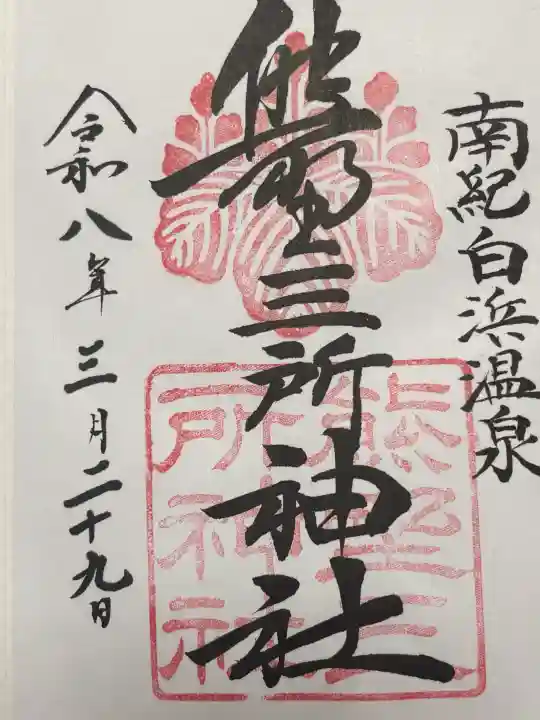 南紀白浜温泉
熊野三所神社
熊野三
所神社
令和八年三月二十九日